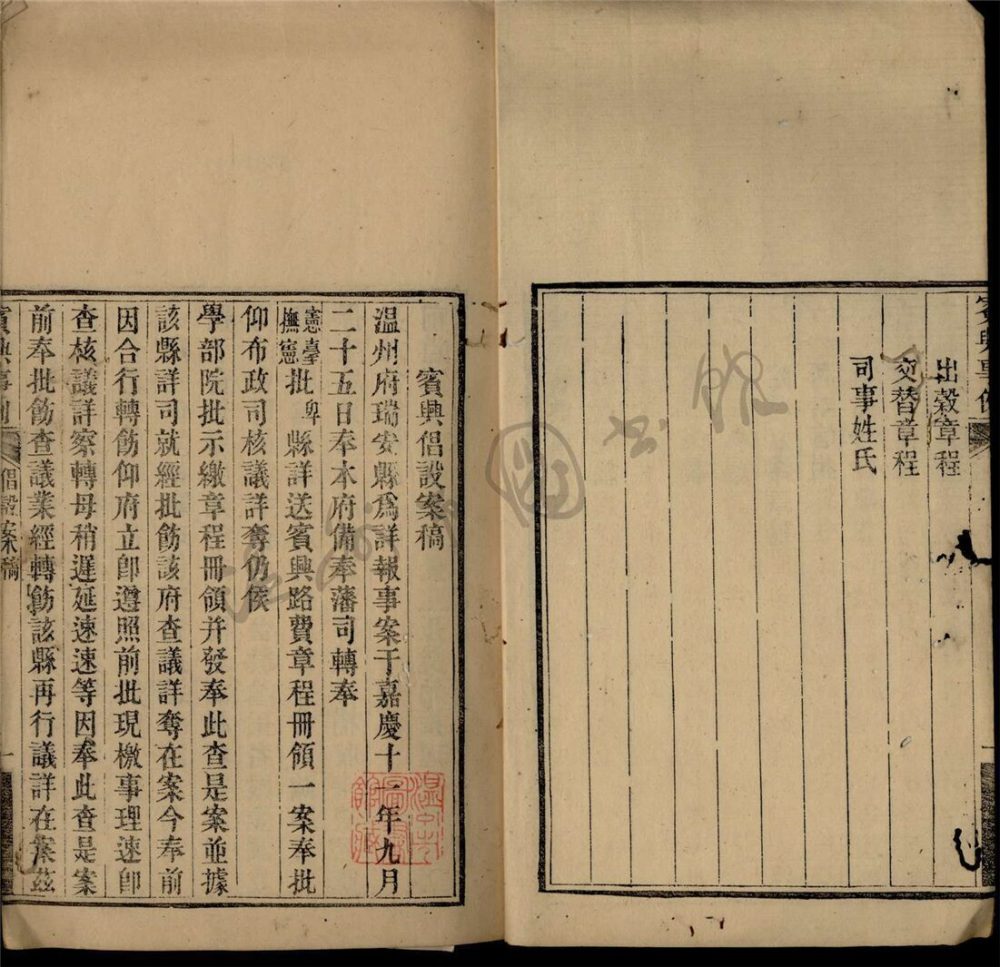 出穀章程
交替章程
司事姓氏
賓興倡設案稿
温州府瑞安縣爲詳報事案于嘉慶十一年九月
二十五日奉本府備奉藩司轉奉
憲臺
撫憲批卑縣詳送賓興路費章程冊領一案奉批
仰布政司核議詳奪仍候
學部院批示繳章程冊領并發奉此查是案並據
該縣詳司就經批飭該府查議詳奪在案今奉前
因合行轉飭仰府立卽遵照前批現檄事理速卽
查核議詳察轉毋稍遲延速速等因奉此查是案
前奉批飭查議業經轉飭該縣再行議詳在案茲
倡設案稿
一